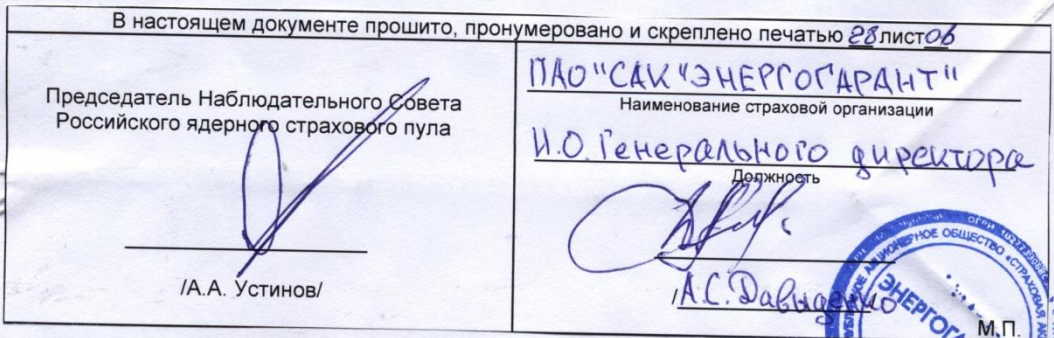 В настоящем документе прошито, пронумеровано и скреплено печатью 28 листов
Председатель Наблюдательного Совета
Российского ядерного страхового пула
/А.А. Устинов/
ПАО "САК "ЭНЕРГОГАРАНТ"
Наименование страховой организации
И.О. Генерального директора
Должность
/А.С. Давиденко
М.П.
АКЦИОНЕРНОЕ ОБЩЕСТВО «СТРАХОВАЯ